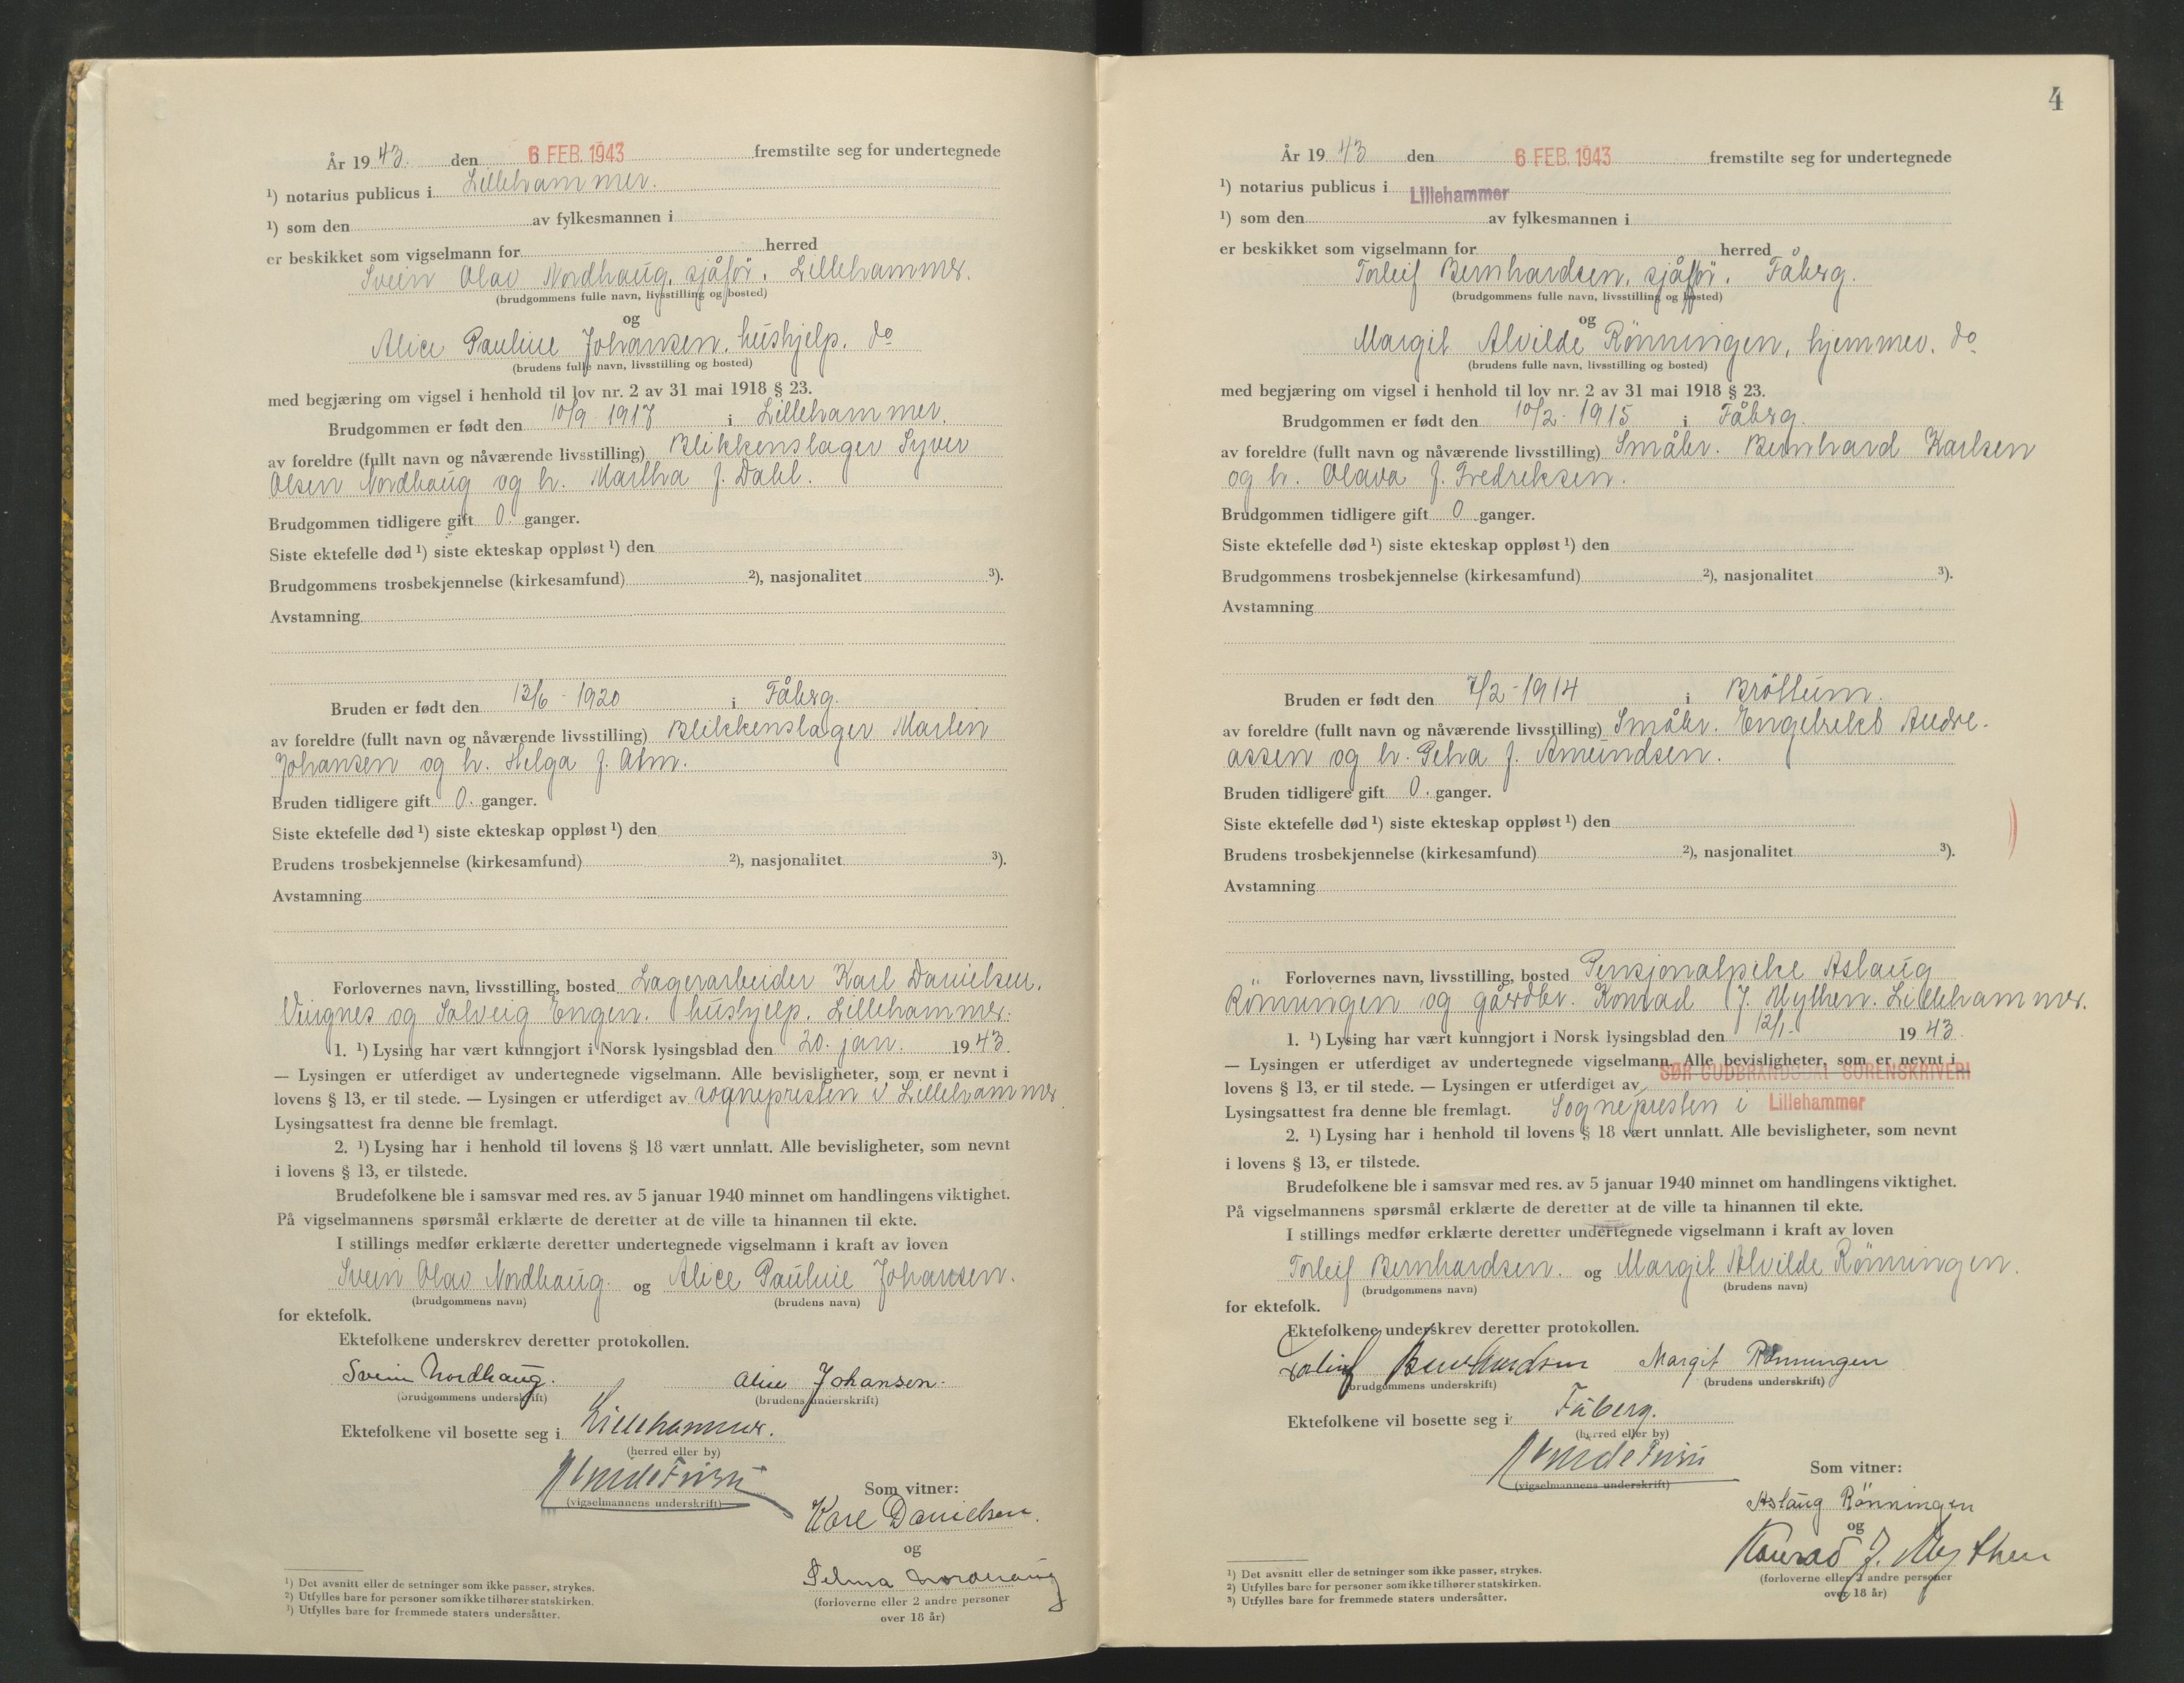 År 19 43. den 6 FEB. 1943 fremstilte seg for undertegnede
¹) notarius publicus i Lillehammer.
¹) som den av fylkesmannen i
er beskikket som vigselmann for herred
Svein Olav Nordhaug, sjåför, Lillehammer.
(brudgommens fulle navn, livsstilling og bosted)
og
Alice Pauline Johansen, hushjelp, do
(brudens fulle navn, livsstilling og bosted)
med begjæring om vigsel i henhold til lov nr. 2 av 31 mai 1918 § 23.
Brudgommen er født den 10/9 - 1917 i Lillehammer.
av foreldre (fullt navn og nåværende livsstilling) Blikkenslager Syver
Olsen Nordhaug og h. Martha f. Dahl.
Brudgommen tidligere gift 0. ganger.
Siste ektefelle død ¹) siste ekteskap oppløst ¹) den
Brudgommens trosbekjennelse (kirkesamfund) ²), nasjonalitet ³).
Avstamning
Bruden er født den 13/6 - 1920 i Fåbrg.
av foreldre (fullt navn og nåværende livsstilling) Blikkenslager Martin
Johansen og h. Helga f. Alm.
Bruden tidligere gift 0. ganger.
Siste ektefelle død ¹) siste ekteskap oppløst ¹) den
Brudens trosbekjennelse (kirkesamfund) ²), nasjonalitet ³).
Avstamning
Forlovernes navn, livsstilling, bosted Lagerarbeider Karl Danielsen,
Vingnes og Solveig Engen, hushjelp, Lillehammer.
1. ¹) Lysing har vært kunngjort i Norsk lysingsblad den 20. jan. 19 43.
— Lysingen er utferdiget av undertegnede vigselmann. Alle bevisligheter, som er nevnt i
lovens § 13, er til stede. — Lysingen er utferdiget av sognepresten i Lillehammer
Lysingsattest fra denne ble fremlagt.
2. ¹) Lysing har i henhold til lovens § 18 vært unnlatt. Alle bevisligheter, som nevnt
i lovens § 13, er tilstede.
Brudefolkene ble i samsvar med res. av 5 januar 1940 minnet om handlingens viktighet.
På vigselmannens spørsmål erklærte de deretter at de ville ta hinannen til ekte.
I stillings medfør erklærte deretter undertegnede vigselmann i kraft av loven
Svein Olav Nordhaug. og Alice Pauline Johansen.
(brudgommens navn) (brudens navn)
for ektefolk.
Ektefolkene underskrev deretter protokollen.
Svein Nordhaug. Alice Johansen.
(brudgommens underskrift) (brudens underskrift)
Ektefolkene vil bosette seg i Lillehammer.
(herred eller by)
(vigselmannens underskrift)
Som vitner:
Kare Danielsen.
og
Selma Nordhaug
(forloverne eller 2 andre personer
over 18 år)
¹) Det avsnitt eller de setninger som ikke passer, strykes.
²) Utfylles bare for personer som ikke tilhører statskirken.
³) Utfylles bare for fremmede staters undersåtter.
4
År 19 43 den 6 FEB. 1943 fremstilte seg for undertegnede
¹) notarius publicus i Lillehammer
¹) som den av fylkesmannen i
er beskikket som vigselmann for herred
Torleif Bernhardsen, sjåför, Fåbrg.
(brudgommens fulle navn, livsstilling og bosted)
og
Margit Alvilde Rönningen, hjemmev. do
(brudens fulle navn, livsstilling og bosted)
med begjæring om vigsel i henhold til lov nr. 2 av 31 mai 1918 § 23.
Brudgommen er født den 10/2 - 1915 i Fåbrg.
av foreldre (fullt navn og nåværende livsstilling) Småbr. Bernhard Karlsen
og h. Olava f. Fredriksen.
Brudgommen tidligere gift 0 ganger.
Siste ektefelle død ¹) siste ekteskap oppløst ¹) den
Brudgommens trosbekjennelse (kirkesamfund) ²), nasjonalitet ³).
Avstamning
Bruden er født den 7/2 - 1914 i Bröttum.
av foreldre (fullt navn og nåværende livsstilling) Småbr. Engebrekt Andre-
assen og h. Petra f. Amundsen.
Bruden tidligere gift 0. ganger.
Siste ektefelle død ¹) siste ekteskap oppløst ¹) den
Brudens trosbekjennelse (kirkesamfund) ²), nasjonalitet ³).
Avstamning
" Forlovernes navn, livsstilling, bosted Pensjonatpike Aslaug
Rönningen og gårdbr. Konrad J. Mythen. Lillehammer.
1. ¹) Lysing har vært kunngjort i Norsk lysingsblad den 12/1- 19 43.
— Lysingen er utferdiget av undertegnede vigselmann. Alle bevisligheter, som er nevnt i
SØR GUDBRANDSDAL SORENSKRIVERI
lovens § 13, er til stede. — Lysingen er utferdiget av
Lysingsattest fra denne ble fremlagt. Sognepresten i Lillehammer
2. ¹) Lysing har i henhold til lovens § 18 vært unnlatt. Alle bevisligheter, som nevnt
i lovens § 13, er tilstede.
Brudefolkene ble i samsvar med res. av 5 januar 1940 minnet om handlingens viktighet.
På vigselmannens spørsmål erklærte de deretter at de ville ta hinannen til ekte.
I stillings medfør erklærte deretter undertegnede vigselmann i kraft av loven
Torleif Bernhardsen. og Margit Alvilde Rönningen.
(brudgommens navn) (brudens navn)
for ektefolk.
Ektefolkene underskrev deretter protokollen.
Torleif Bernhardsen Margit Rønningen
(brudgommens underskrift) (brudens underskrift)
Ektefolkene vil bosette seg i Fåberg.
(herred eller by)
(vigselmannens underskrift)
Som vitner:
Aslaug Rönningen
og
Konrad J. Mythen
(forloverne eller 2 andre personer
over 18 år)
¹) Det avsnitt eller de setninger som ikke passer, strykes.
²) Utfylles bare for personer som ikke tilhører statskirken.
³) Utfylles bare for fremmede staters undersåtter.